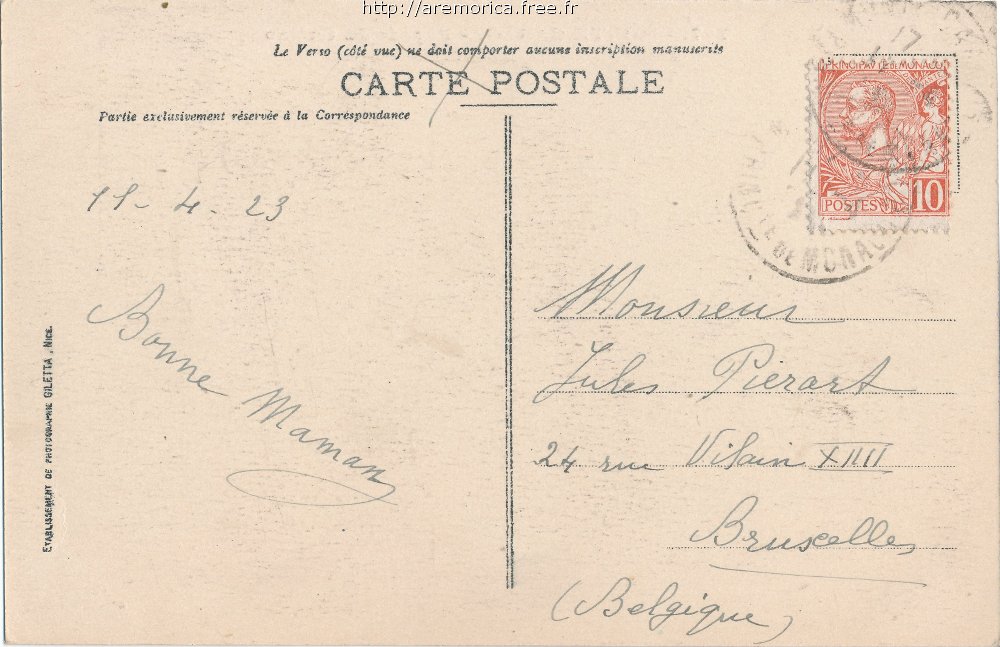 http://aremorica.free.fr
Le Verso (côté vue) ne doit comporter aucune inscription manuscrite
CARTE POSTALE
Partie exclusivement réservée à la Correspondance
PRINCIPAUTÉ DE MONACO
POSTES 10
DE MONACO
17
4 - 23
Bonne Maman
Monsieur
Jules Pierart
24 rue Vilain XIIII
Bruxelles
(Belgique)
ETABLISSEMENT DE PHOTOGRAPHIE GILETTA, NICE.